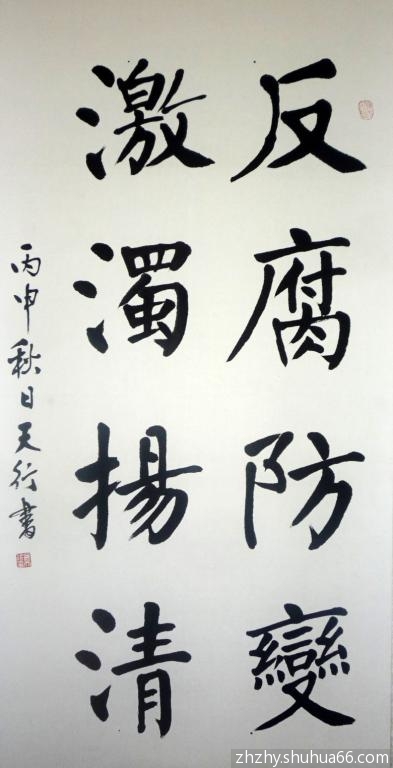 反腐防變
激濁揚清
丙申秋日天行書
zhzhy.shuhua66.com